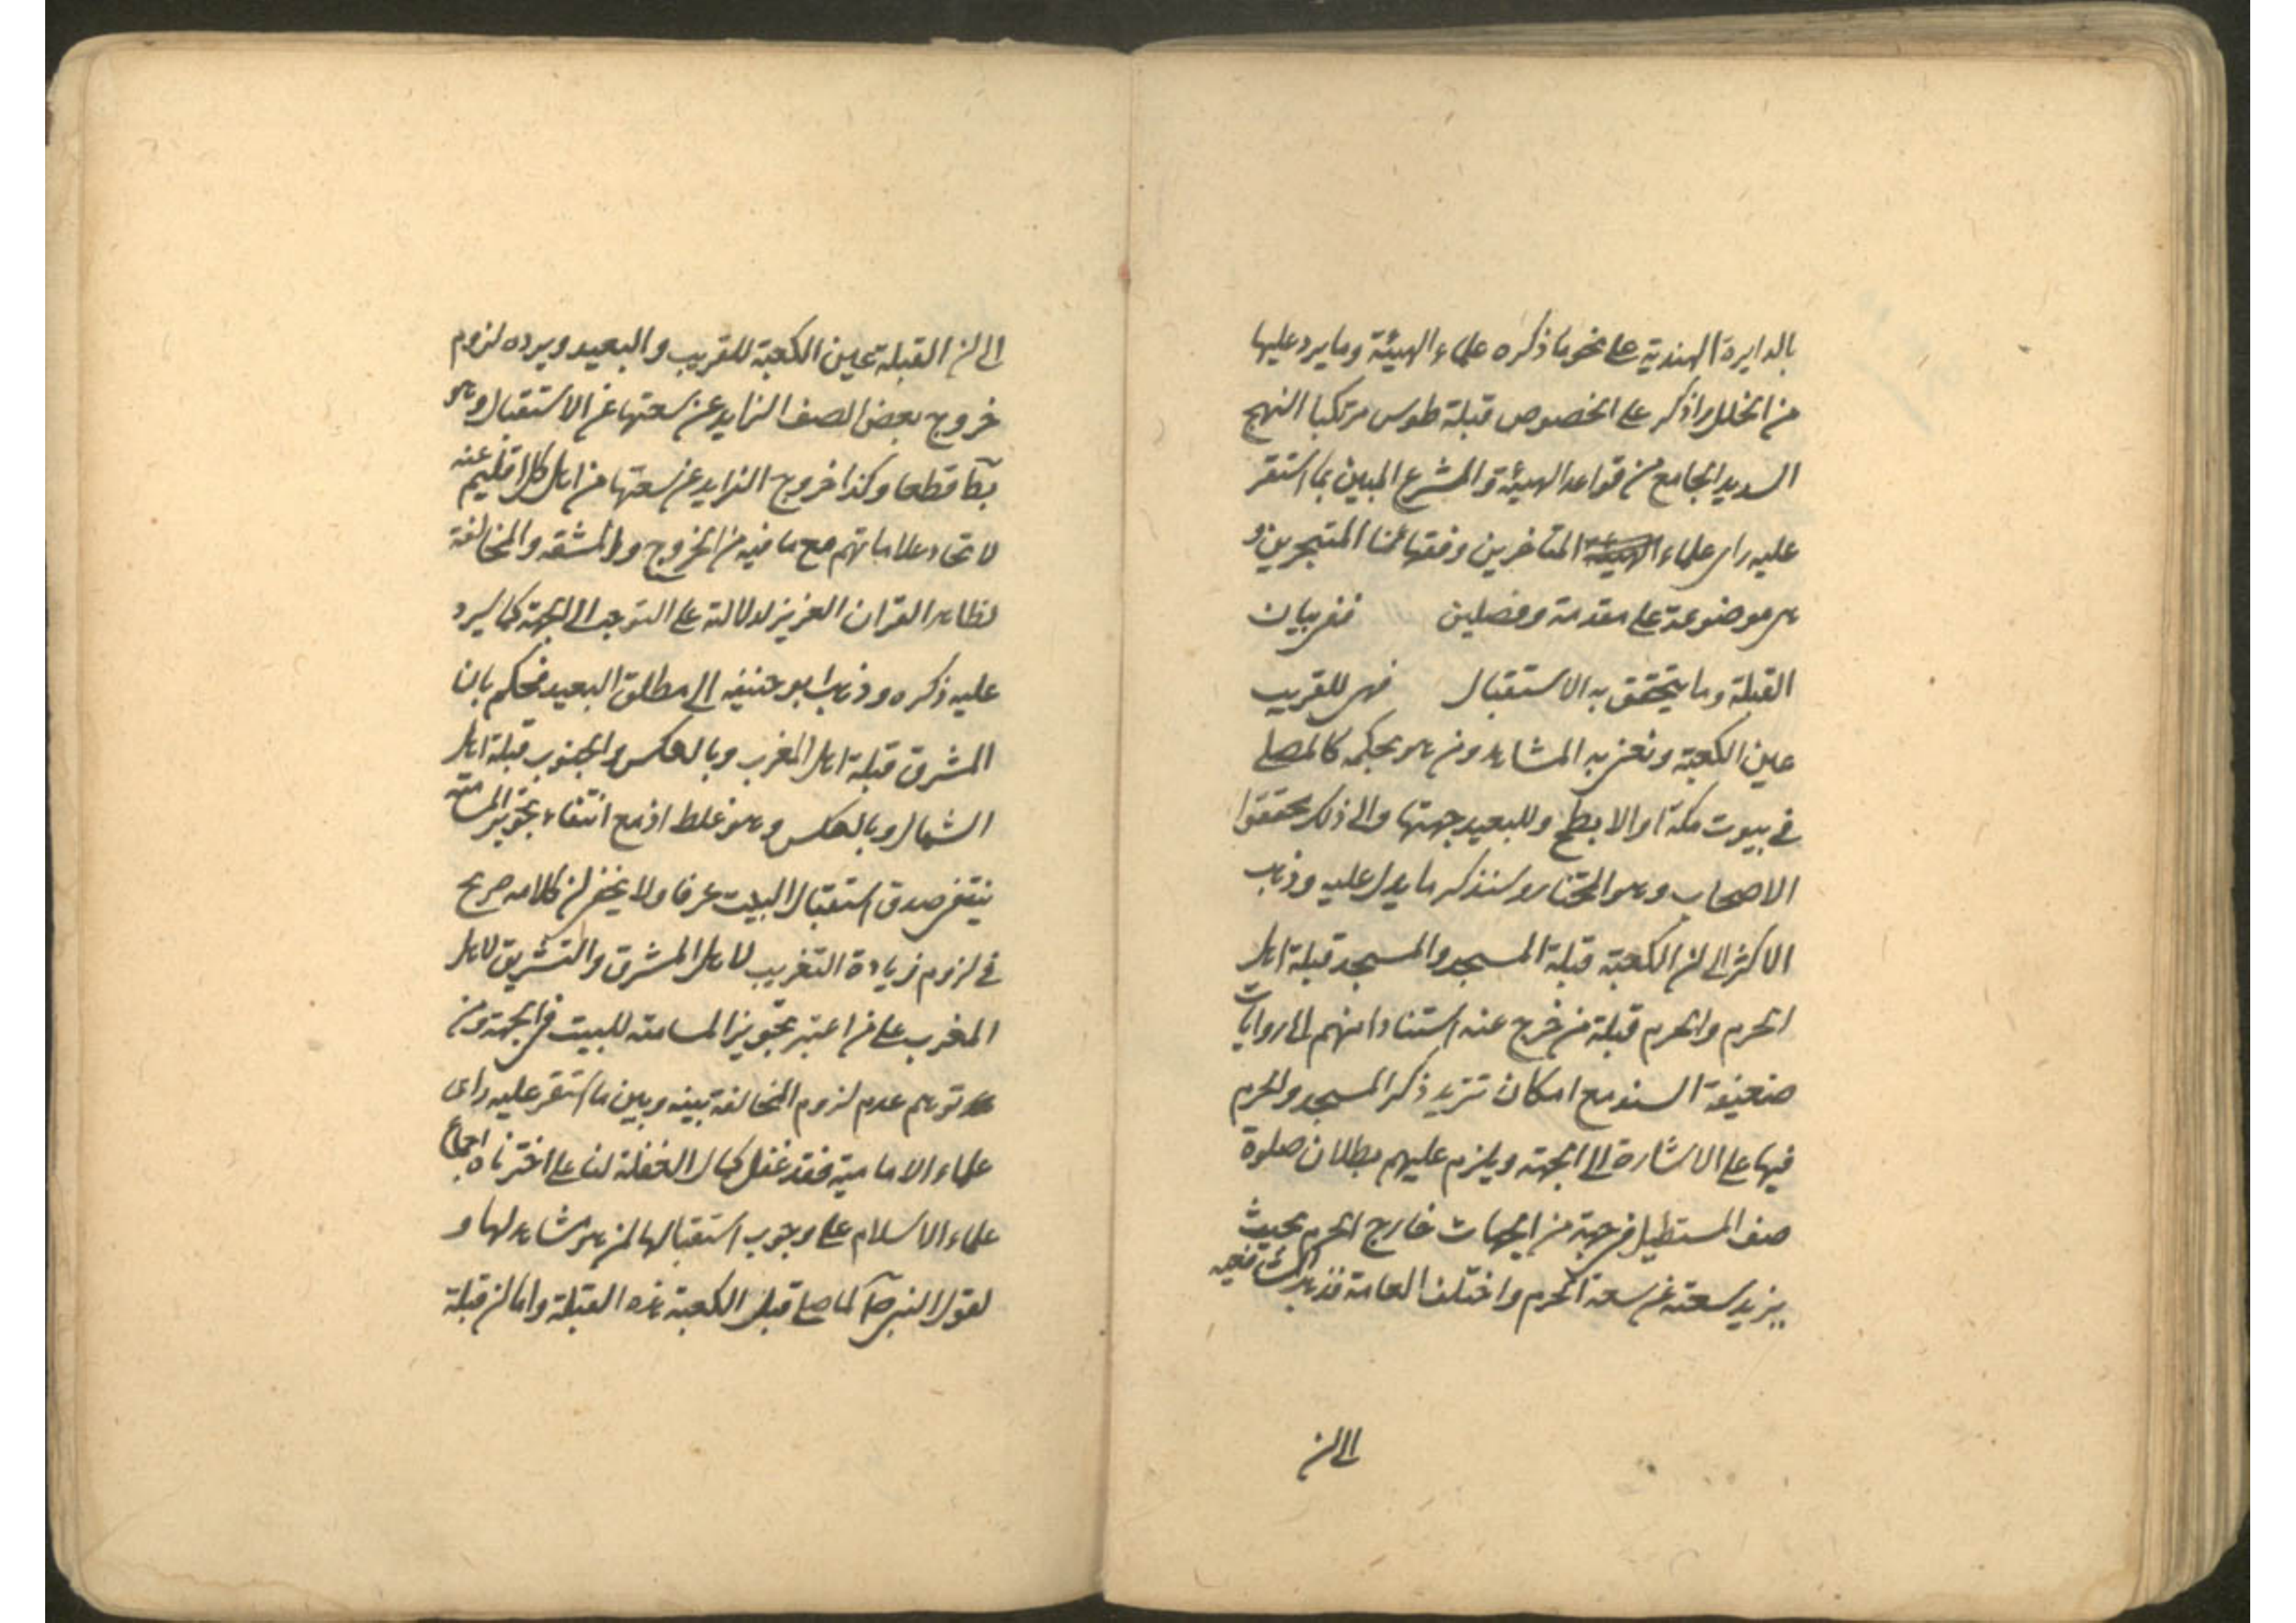 بالدايرة الهندية على نحو ما ذكره علماء الهيئة وما يرد عليها
من الخلل واذكر على الخصوص قبلة طوس مرتكبا النهج
السديد الجامع من قواعد الهيئة والمشرع المبين بما استقر
عليه راى علماء المتاخرين وفقهائنا المتبحرين و
هى موضوعة على مقدمة وفصلين ففى بيان
القبلة وما يتحقق به الاستقبال فهى للقريب
عين الكعبة ونعنى به المشاهد ومن هو بحكمه كالمصلى
فى بيوت مكة او الابطح وللبعيد جهتها والى ذلك محققوا
الاصحاب وهو المختار وسنذكر ما يدل عليه وذهب
الاكثر الى ان الكعبة قبلة المسجد والمسجد قبلة اهل
الحرم والحرم قبلة من خرج عنه استنادا منهم الى روايات
ضعيفة السند مع امكان تنزيل ذكر المسجد والحرم
فيها على الاشارة الى الجهة ويلزم عليهم بطلان صلوة
صف المستطيل فى جهة من الجهات خارج الحرم بحيث
يزيد سعته عن سعة الحرم واختلف العامة فذهب الشافعيه
الى ان
الى ان القبلة عين الكعبة للقريب والبعيد ويرده لزوم
خروج بعض الصف الزايد عن سعتها عن الاستقبال وهو
بط قطعا وكذا خروج الزايد عن سعتها من اهل كل اقليم عنه
لاتحاد علاماتهم مع ما فيه من الخروج والمشقه والمخالفة
لظاهر القران العزيز لدلالته على التوجه الى الجهة كما سيرد
عليه ذكره وذهب ابو حنيفه الى مطلق البعيد فحكم بان
المشرق قبلة اهل المغرب وبالعكس والجنوب قبلة اهل
الشمال وبالعكس وهو غلط اذ مع انتفاء تجويز المسامتة
ينتفى صدق استقبال البيت عرفا ولا يخفى ان كلامه صريح
فى لزوم زيادة التغريب لاهل المشرق والتشريق لاهل
المغرب على من اعتبر تجويز المسامته للبيت فى الجهة ومن
توهم عدم لزوم المخالفة بينه وبين ما استقر عليه راى
علماء الامامية فقد غفل كمال الغفلة لنا على اخترناه اجماع
علماء الاسلام على وجوب استقبالها لمن هو مشاهد لها و
لقول النبى ص لما صلى قبل الكعبة هذه القبلة واما ان قبلة